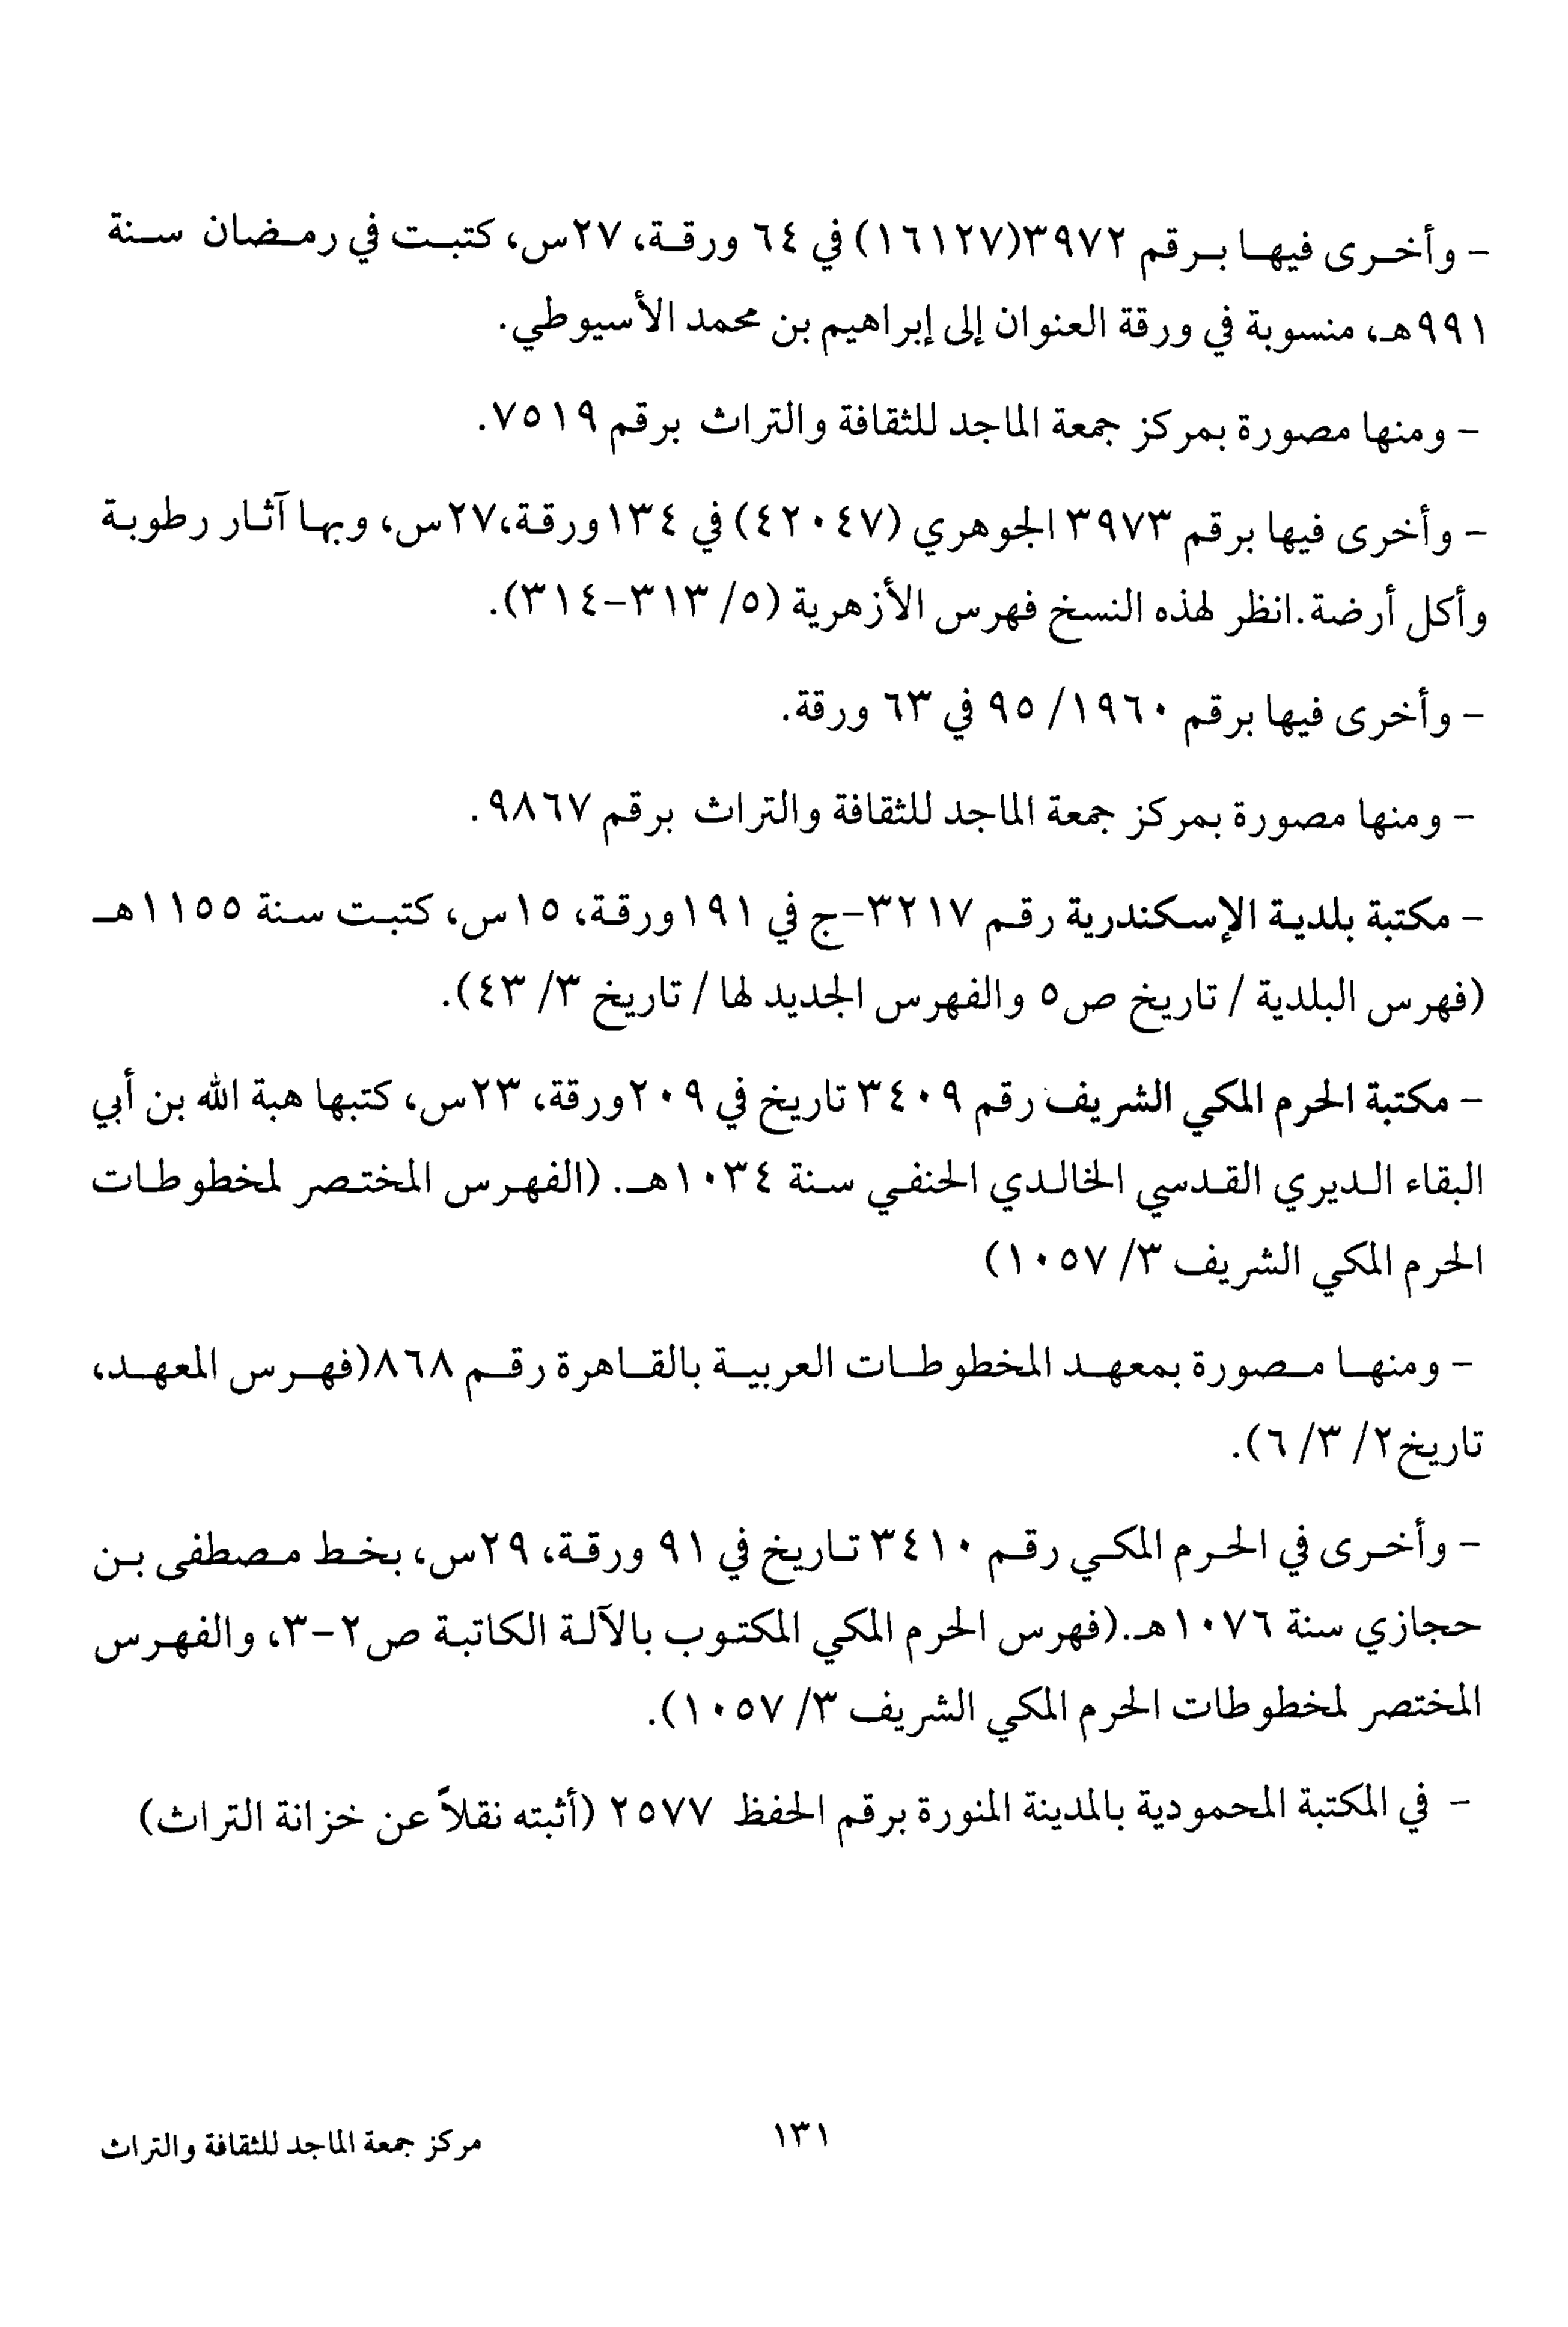 - وأخرى فيها برقم ٣٩٧٢(١٦١٢٧) في ٦٤ ورقة، ٢٧س، كتبت في رمضان سنة
٩٩١هـ، منسوبة في ورقة العنوان إلى إبراهيم بن محمد الأسيوطي.
- ومنها مصورة بمركز جمعة الماجد للثقافة والتراث برقم ٧٥١٩.
- وأخرى فيها برقم ٣٩٧٣ الجوهري (٤٢٠٤٧) في ١٣٤ورقة،٢٧س، وبها آثار رطوبة
وأكل أرضة.انظر لهذه النسخ فهرس الأزهرية (٥/ ٣١٣-٣١٤).
- وأخرى فيها برقم ١٩٦٠/ ٩٥ في ٦٣ ورقة.
- ومنها مصورة بمركز جمعة الماجد للثقافة والتراث برقم ٩٨٦٧.
- مكتبة بلدية الإسكندرية رقم ٣٢١٧-ج في ١٩١ورقة، ١٥س، كتبت سنة ١١٥٥هـ
(فهرس البلدية / تاريخ ص٥ والفهرس الجديد لها / تاريخ ٣/ ٤٣).
- مكتبة الحرم المكي الشريف رقم ٣٤٠٩ تاريخ في ٢٠٩ورقة، ٢٣س، كتبها هبة الله بن أبي
البقاء الديري القدسي الخالدي الحنفي سنة ١٠٣٤هـ. (الفهرس المختصر لمخطوطات
الحرم المكي الشريف ٣/ ١٠٥٧)
- ومنها مصورة بمعهد المخطوطات العربية بالقاهرة رقم ٨٦٨(فهرس المعهد،
تاريخ٢/ ٣/ ٦).
- وأخرى في الحرم المكي رقم ٣٤١٠ تاريخ في ٩١ ورقة، ٢٩س، بخط مصطفى بن
حجازي سنة ١٠٧٦هـ.(فهرس الحرم المكي المكتوب بالآلة الكاتبة ص٢-٣، والفهرس
المختصر لمخطوطات الحرم المكي الشريف ٣/ ١٠٥٧).
- في المكتبة المحمودية بالمدينة المنورة برقم الحفظ ٢٥٧٧ (أثبته نقلاً عن خزانة التراث)
١٣١
مركز جمعة الماجد للثقافة والتراث